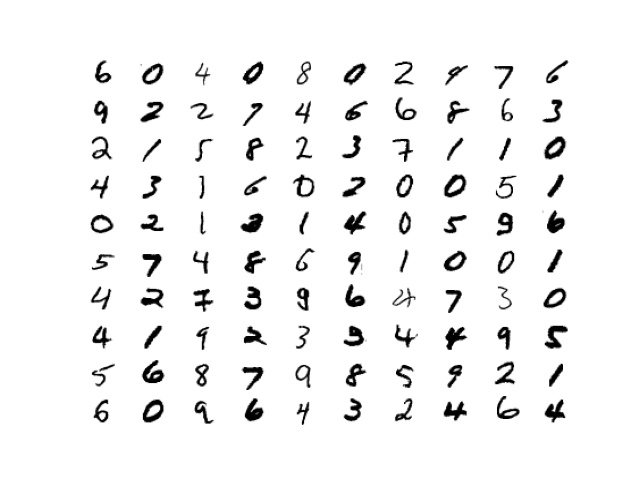 6 0 4 0 8 0 2 9 7 6
9 2 2 7 4 6 6 8 6 3
2 1 5 8 2 3 7 1 1 0
4 3 1 6 0 2 0 0 5 1
0 2 1 3 1 4 0 5 9 6
5 7 4 8 6 9 1 0 0 1
4 2 7 3 9 6 4 7 3 0
4 1 9 2 3 9 4 4 9 5
5 6 8 7 9 8 5 9 2 1
6 0 9 6 4 3 2 4 6 4